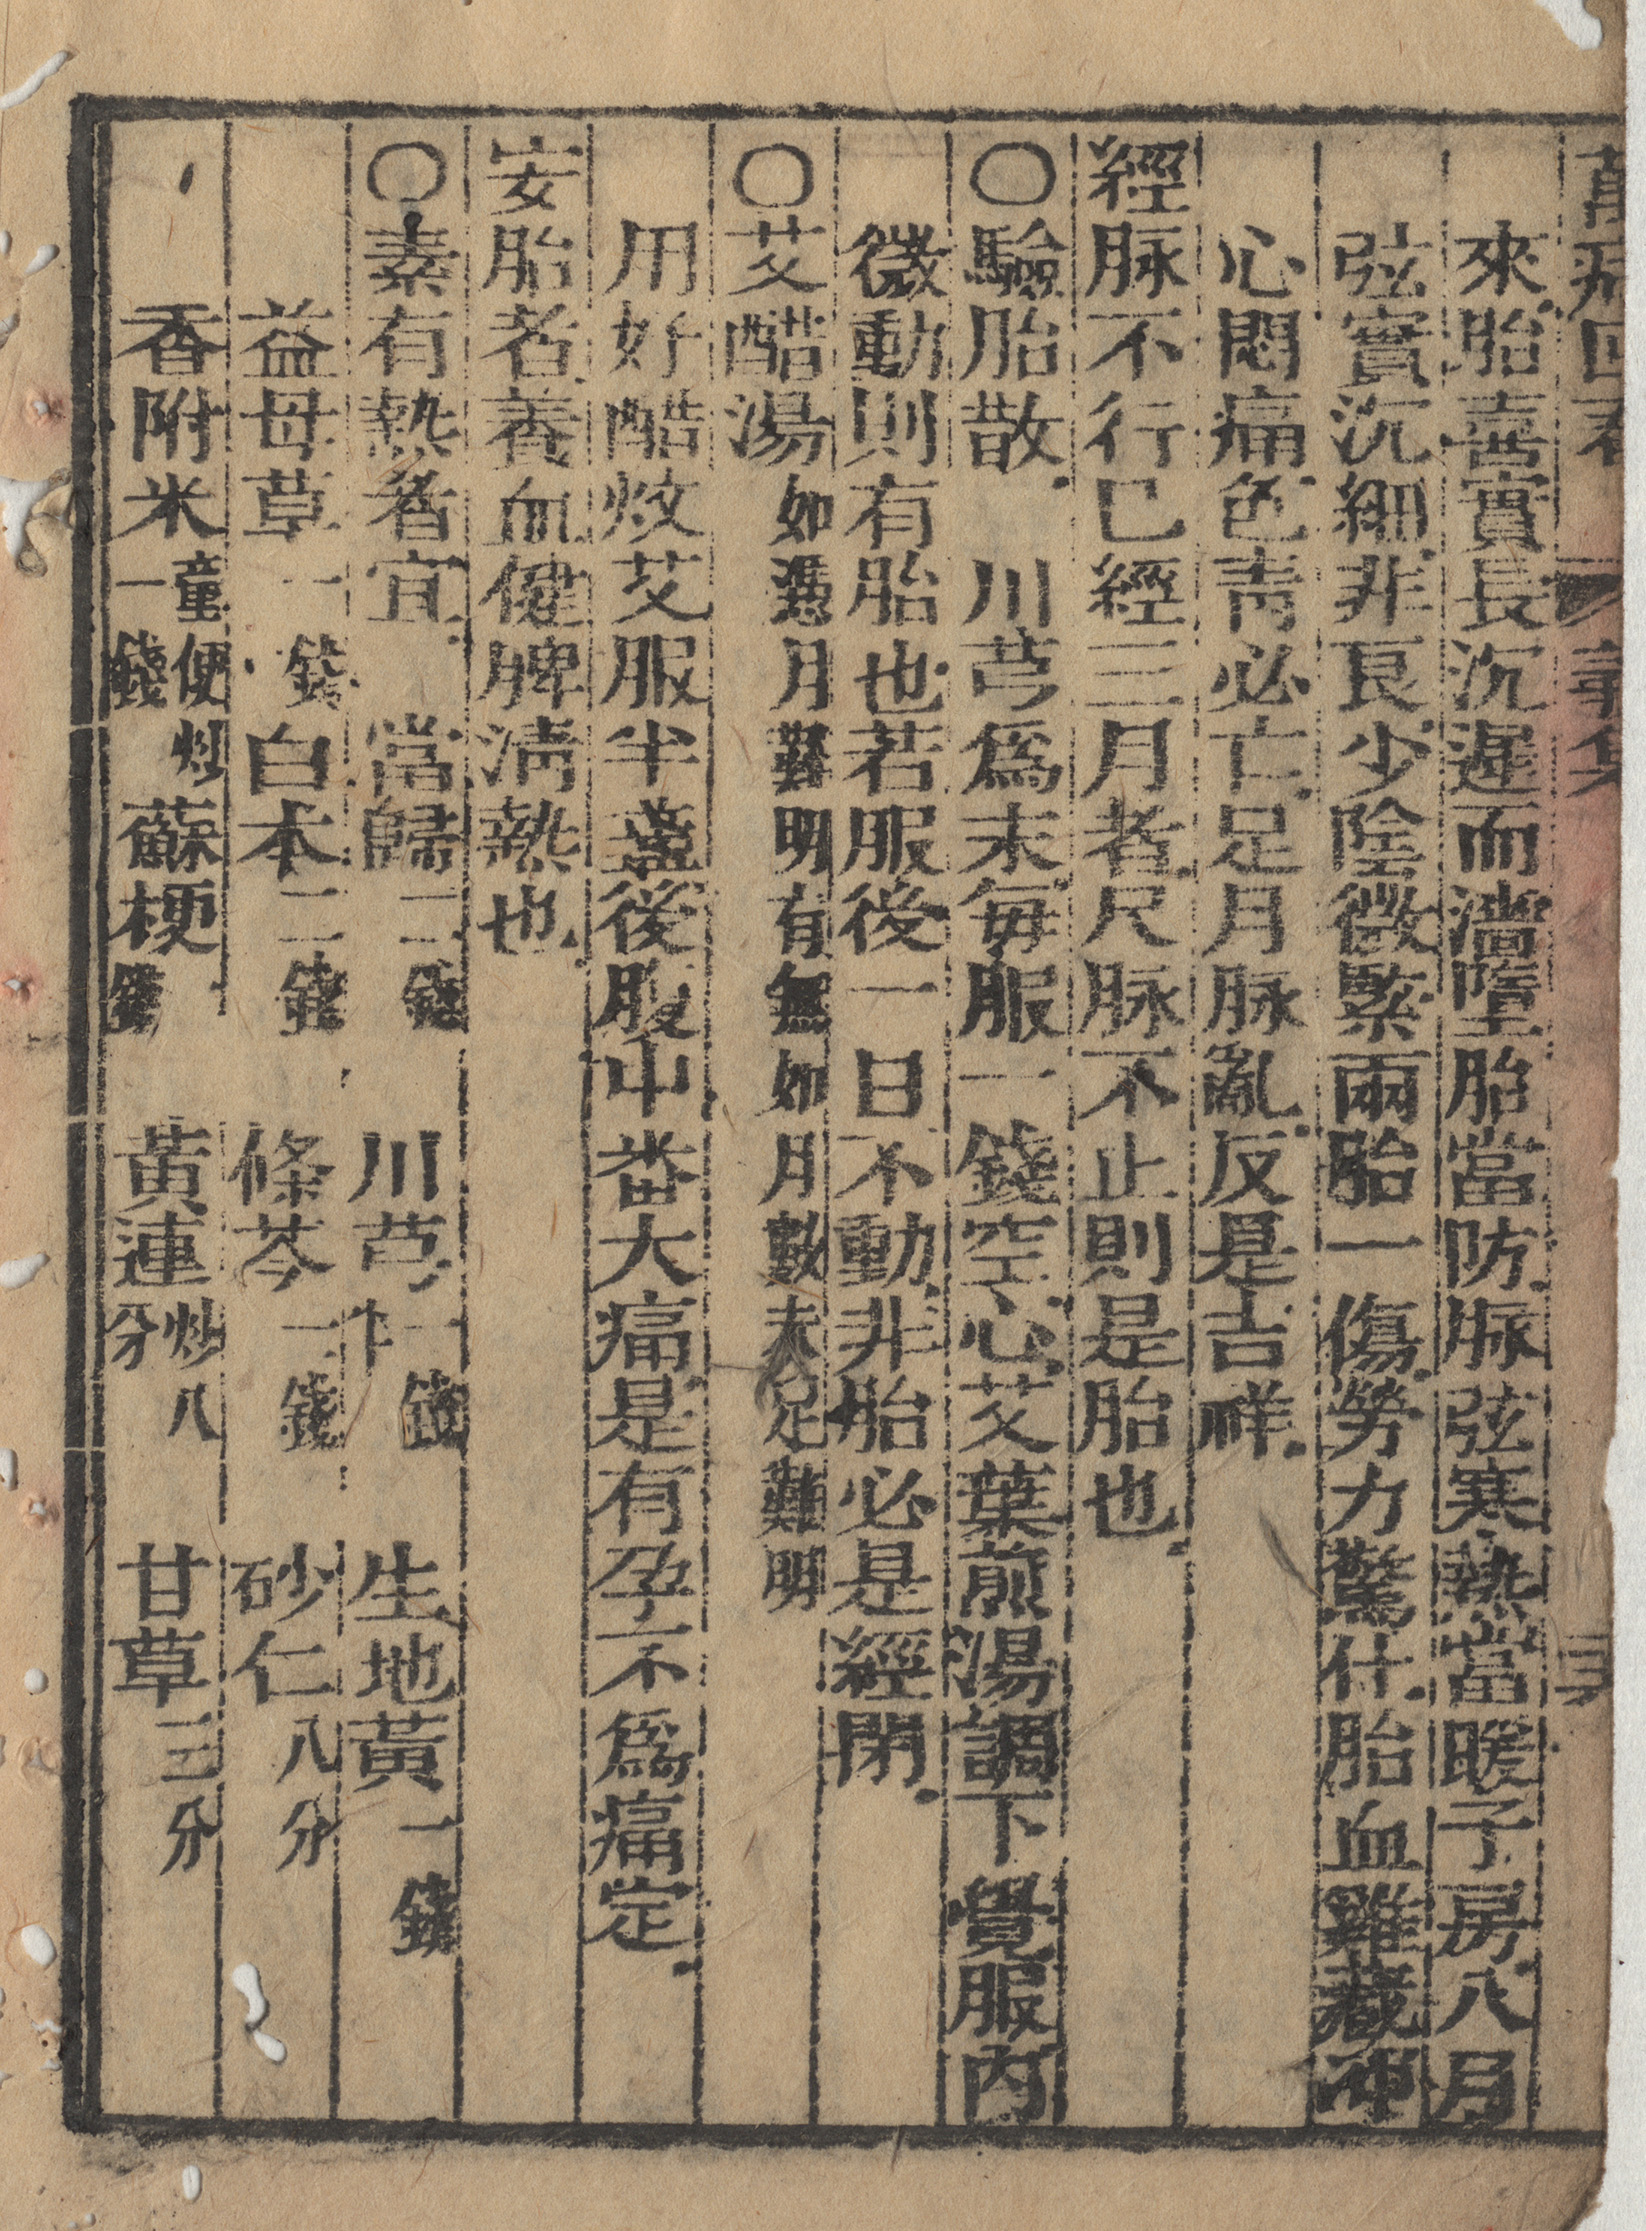 萬病回春 壽集
來胎喜實長沉遲而濇墮胎當防脉弦寒熱當暖子房八月
弦實沉細非良少陰微緊兩胎一傷勞力驚仆胎血難藏冲
心悶痛色青必亡足月脉亂反是吉祥
經脉不行已經三月者尺脉不止則是胎也
〇驗胎散 川芎爲末每服一錢空心艾葉煎湯調下覺服內
微動則有胎也若服後一日不動非胎必是經閉
〇艾醋湯如過月難明有無如月數未足難明
用好醋炆艾服半盞後腹中番大痛是有孕不爲痛定
安胎者養血健脾淸熱也
〇素有熱者宜 當歸二錢 川芎一錢 生地黃一錢
益母草一錢 白朮二錢 條芩一錢 砂仁八分
香附米童便炒一錢 蘇梗錢 黃連炒八分 甘草三分